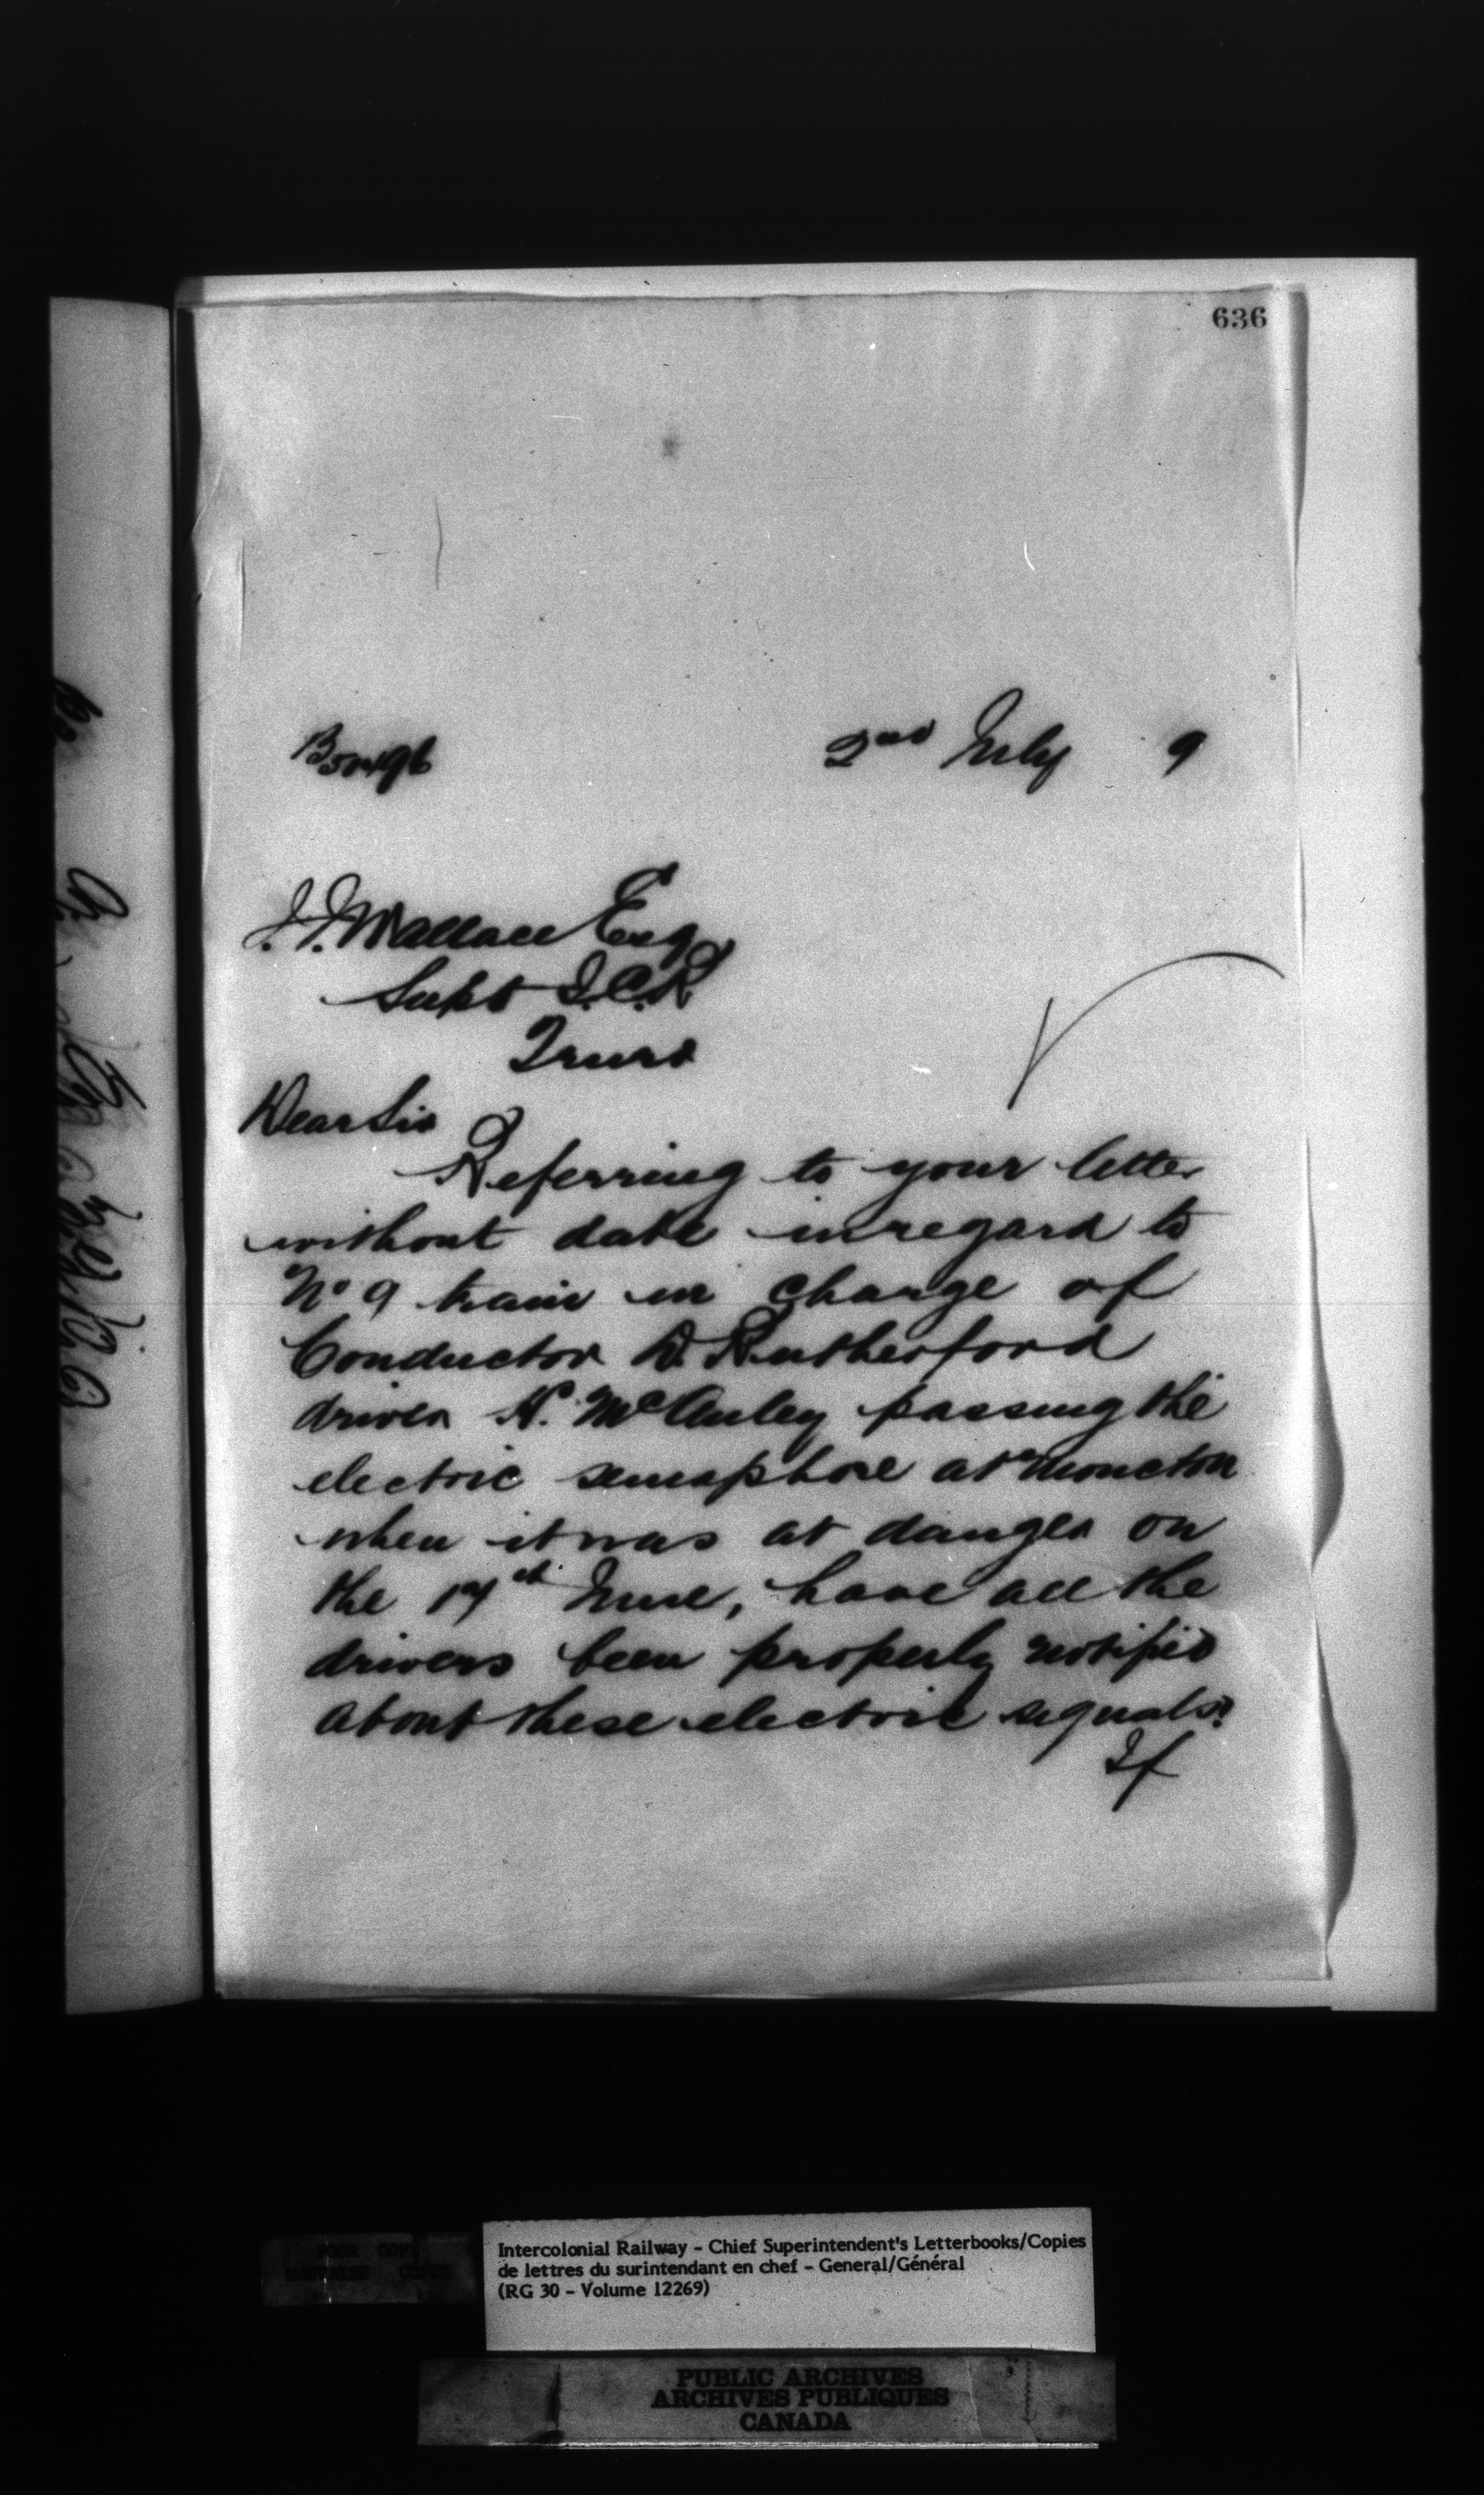 636
2nd July 9
J. J. Wallace Esq
Supt I.C.R
Truro
Dear Sir
Referring to your letter
without date in regard to
No 9 train in charge of
Conductor D. Rutherford
driver N. McAuley passing the
electric semaphore at Moncton
when it was at danger on
the 17th June, have all the
drivers been properly notified
about these electric signals?
If
Intercolonial Railway - Chief Superintendent's Letterbooks/Copies
de lettres du surintendant en chef - General/Général
(RG 30 - Volume 12269)
POOR COPY
PUBLIC ARCHIVES
ARCHIVES PUBLIQUES
CANADA